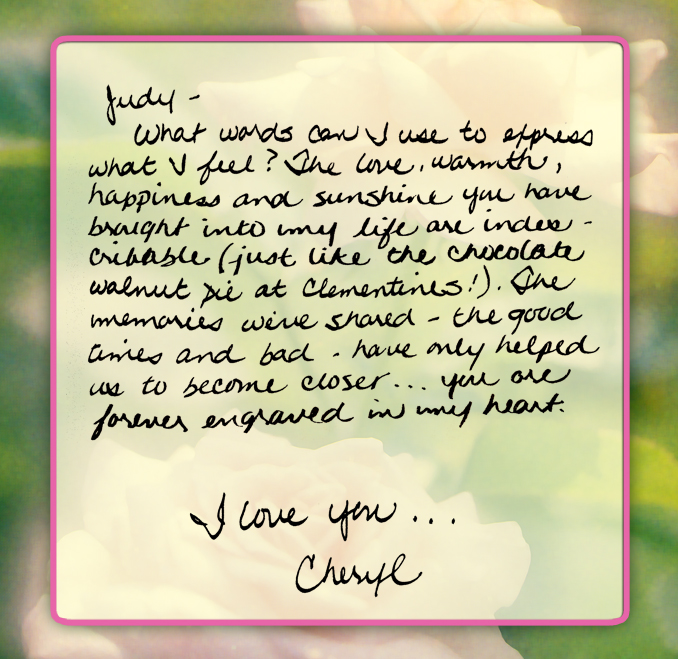 Judy -
What words can I use to express
what I feel? The love, warmth,
happiness and sunshine you have
brought into my life are indes -
cribable (just like the chocolate
walnut pie at Clementines!). The
memories we've shared - the good
times and bad - have only helped
us to become closer... you are
forever engraved in my heart.
I love you ...
Cheryl